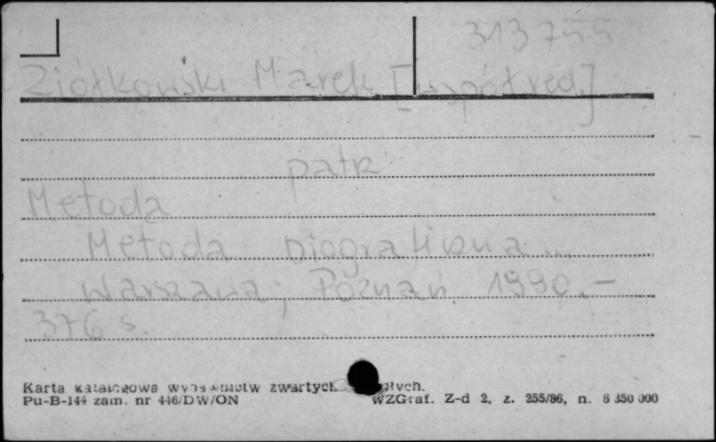 313755
Ziółkowski Marek [współred.]
patrz
Metoda
Metoda biograficzna...
Warszawa; Poznań 1990.-
376 s.
Karta katalogowa wydawnictw zwartych
Pu-B-144 zam. nr 446/DW/ON WZGraf. Z-d 2, z. 255/86, n. 6 350 000